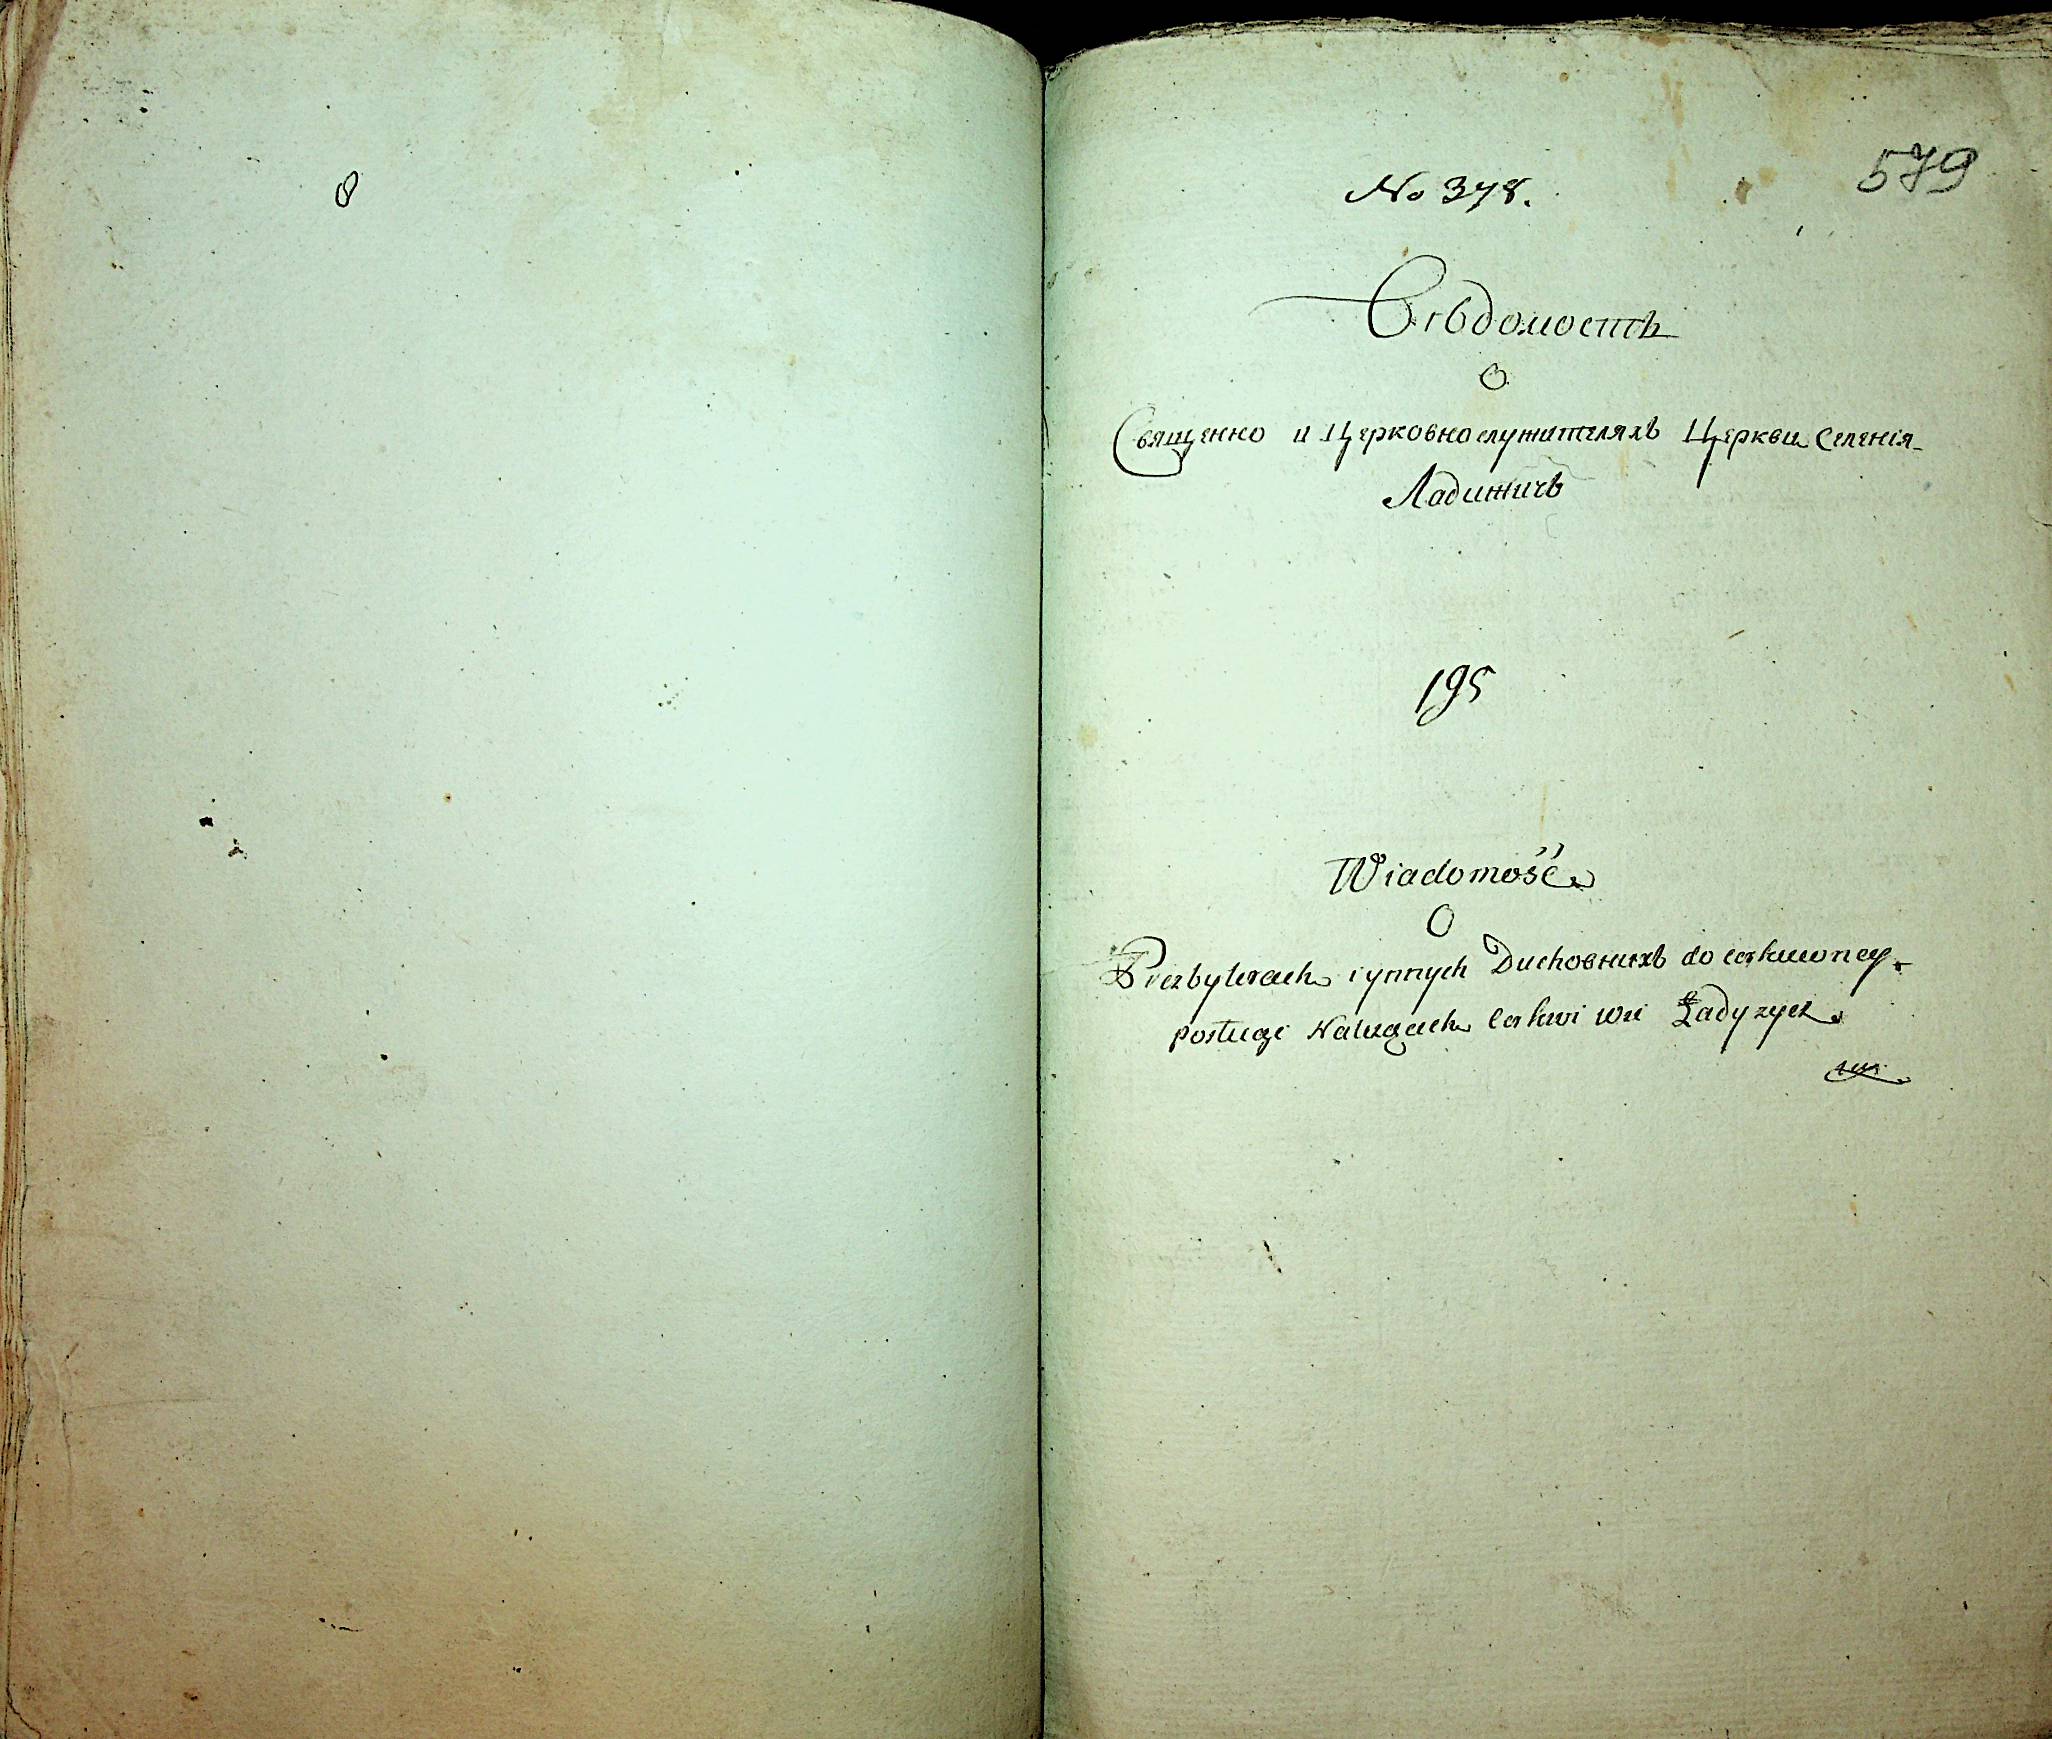 8
579
No 378.
Вѣдомость
О
Священно и Церковнослужителяхъ Церкви Селенія
Ладижичъ
195
Wiadomość
O
Prezbyterach i ynnych Duchовныхъ do cerkiewney
posługi Należących Cerkwi wsi Ładyzycz